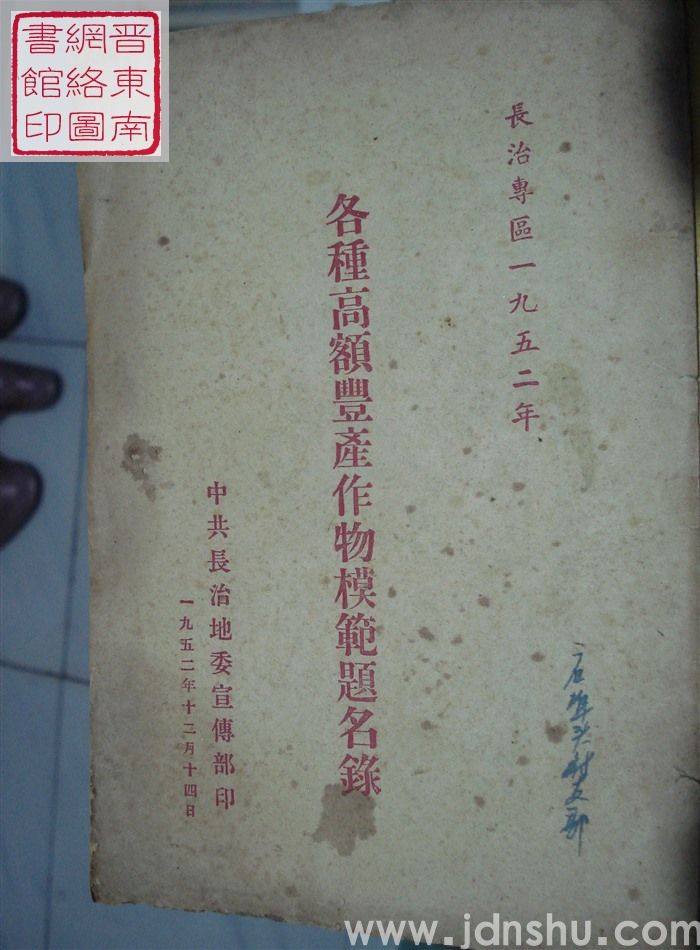 晋東南
網絡圖
書館印
長治專區一九五二年
各種高額豐產作物模範題名錄
中共長治地委宣傳部印
一九五二年十二月十四日
石埠头村支部
www.jdnshu.com